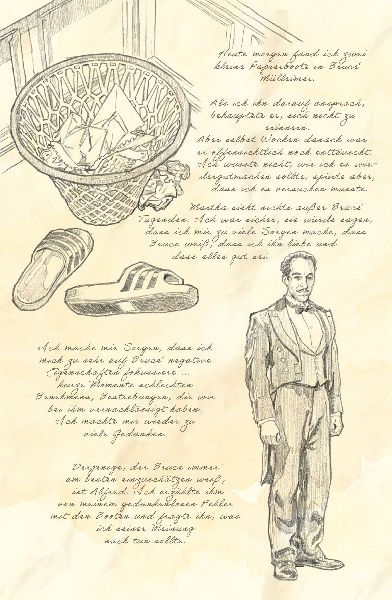 Heute morgen fand ich zwei
kleine Papierboote in Bruce'
Mülleimer.
Als ich ihn darauf ansprach,
behauptete er, sich nicht zu
erinnern.
Aber selbst Wochen danach war
er offensichtlich noch enttäuscht.
Ich wusste nicht, wie ich es wie-
dergutmachen sollte, spürte aber,
dass ich es versuchen musste.
Martha sieht nichts außer Bruce'
Tugenden. Ich war sicher, sie würde sagen,
dass ich mir zu viele Sorgen mache, dass
Bruce weiß, dass ich ihn liebe und
dass alles gut sei.
Ich mache mir Sorgen, dass ich
mich zu sehr auf Bruce' negative
Eigenschaften fokussiere ...
kurze Momente schlechten
Benehmens, Bestrebungen, die wir
bei ihm vernachlässigt haben.
Ich machte mir wieder zu
viele Gedanken.
Derjenige, der Bruce immer
am besten einzuschätzen weiß,
ist Alfred. Ich erzählte ihm
von meinem gedankenlosen Fehler
mit den Booten und fragte ihn, was
ich seiner Meinung
nach tun sollte.